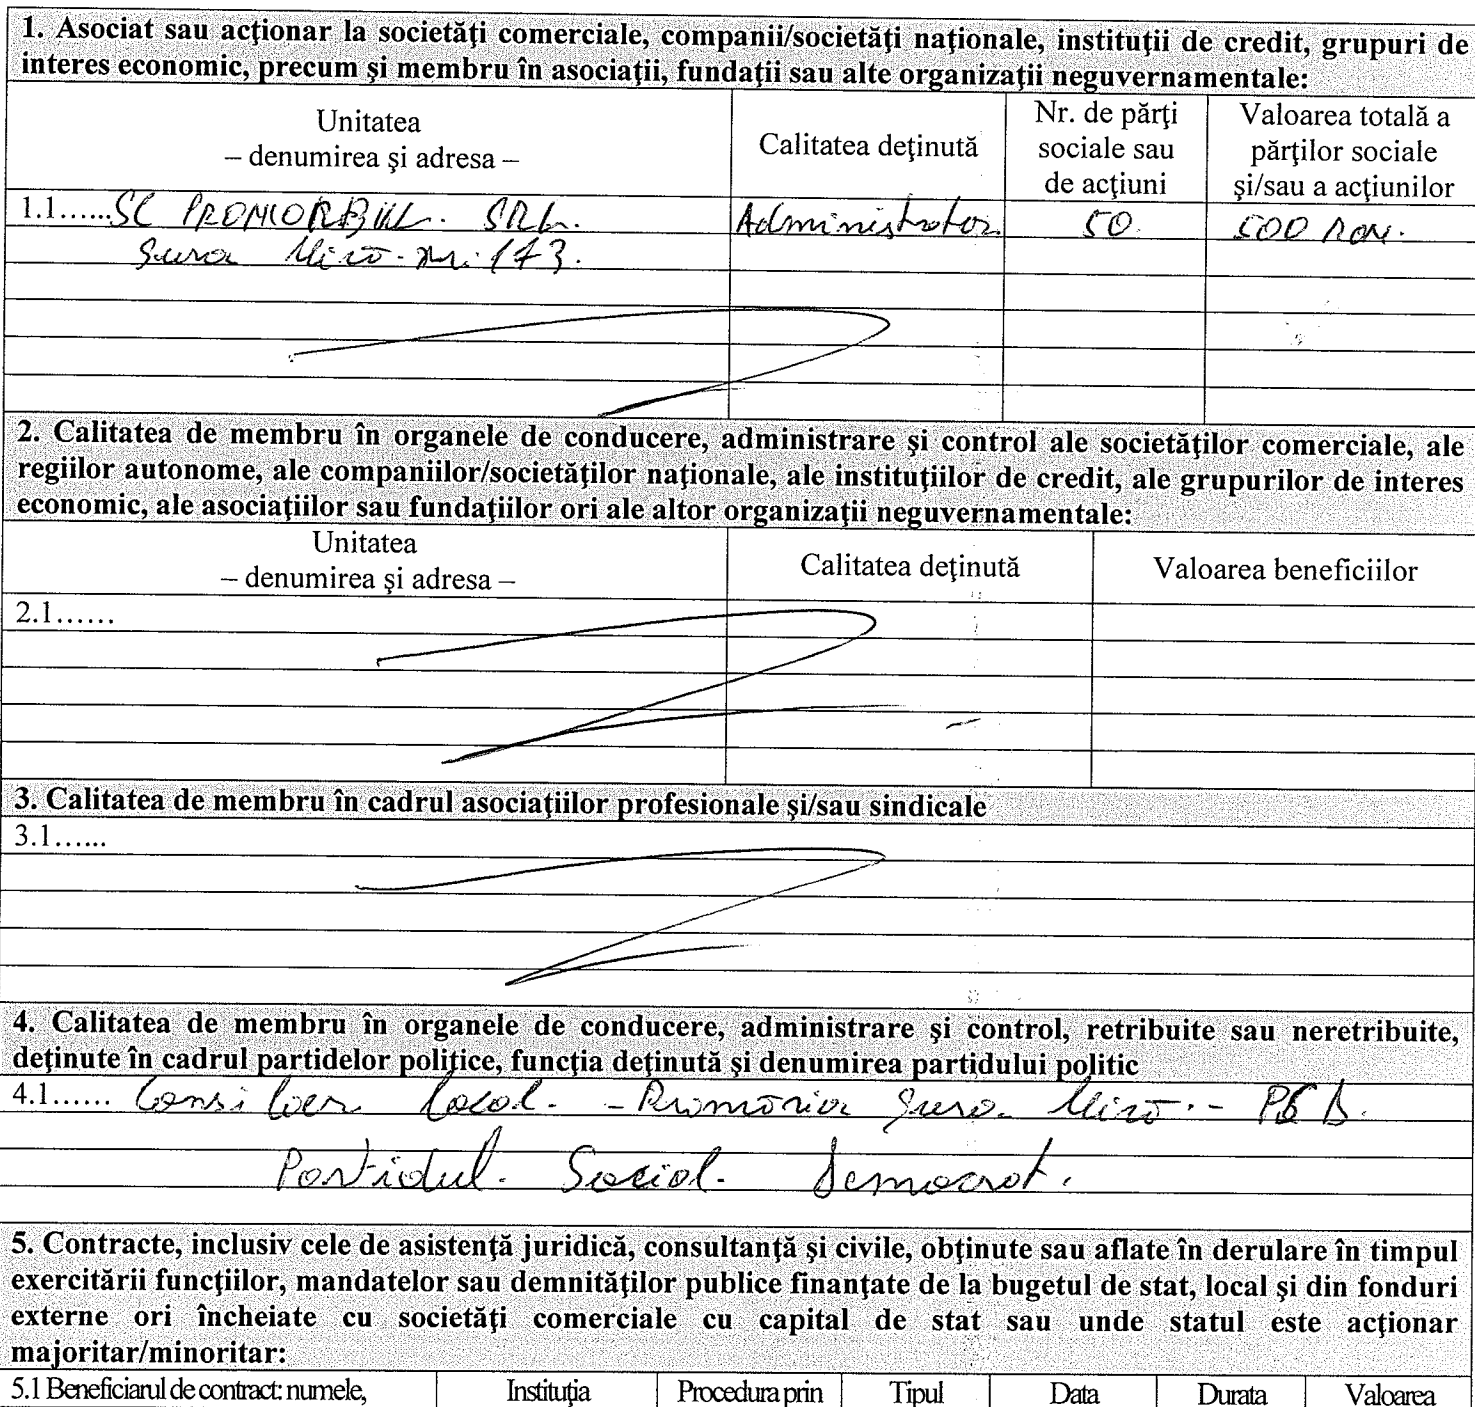 1. Asociat sau acţionar la societăţi comerciale, companii/societăţi naţionale, instituţii de credit, grupuri de
interes economic, precum şi membru în asociaţii, fundaţii sau alte organizaţii neguvernamentale:
Unitatea
– denumirea şi adresa –
Calitatea deţinută
Nr. de părţi
sociale sau
de acţiuni
Valoarea totală a
părţilor sociale
şi/sau a acţiunilor
1.1...... SC SRL. Administrator 50 500 RON.
Gura nr. 173.
2. Calitatea de membru în organele de conducere, administrare şi control ale societăţilor comerciale, ale
regiilor autonome, ale companiilor/societăţilor naţionale, ale instituţiilor de credit, ale grupurilor de interes
economic, ale asociaţiilor sau fundaţiilor ori ale altor organizaţii neguvernamentale:
Unitatea
– denumirea şi adresa –
Calitatea deţinută
Valoarea beneficiilor
2.1......
3. Calitatea de membru în cadrul asociaţiilor profesionale şi/sau sindicale
3.1......
4. Calitatea de membru în organele de conducere, administrare şi control, retribuite sau neretribuite,
deţinute în cadrul partidelor politice, funcţia deţinută şi denumirea partidului politic
4.1...... Consilier local. - Primăria Gura - PSD.
Partidul. Social. Democrat.
5. Contracte, inclusiv cele de asistenţă juridică, consultanţă şi civile, obţinute sau aflate în derulare în timpul
exercitării funcţiilor, mandatelor sau demnităţilor publice finanţate de la bugetul de stat, local şi din fonduri
externe ori încheiate cu societăţi comerciale cu capital de stat sau unde statul este acţionar
majoritar/minoritar:
5.1 Beneficiarul de contract: numele, Instituţia Procedura prin Tipul Data Durata Valoarea